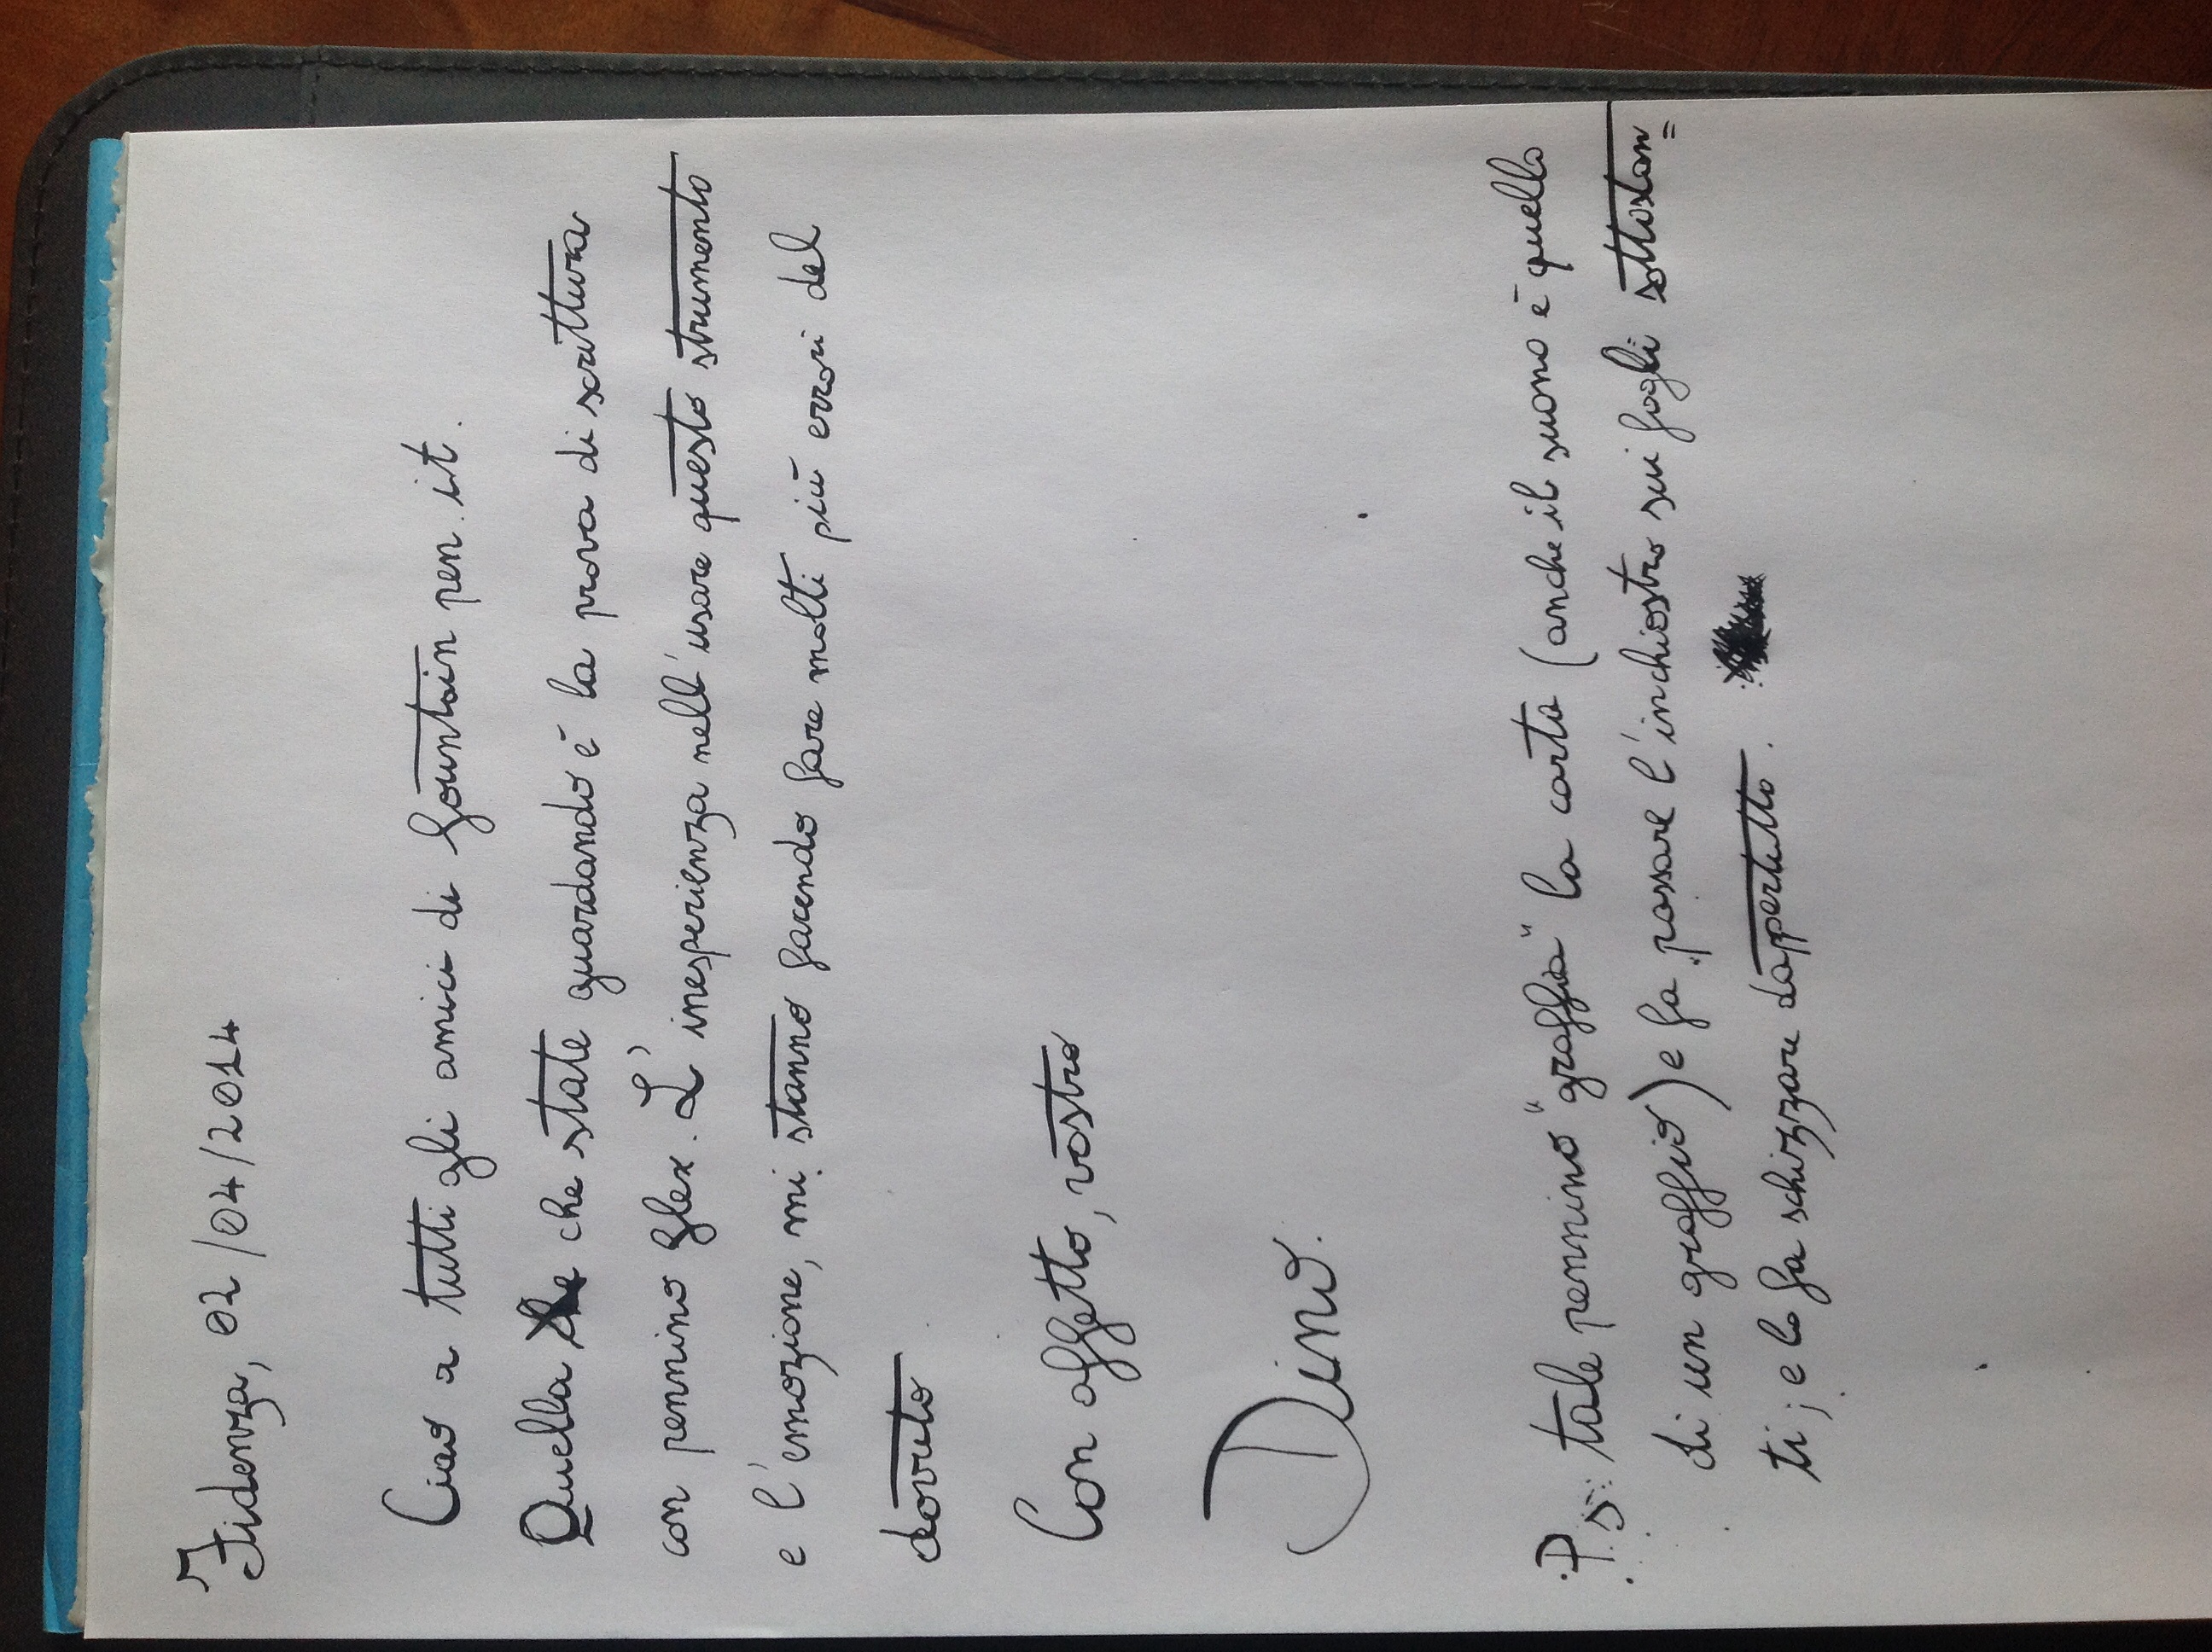 Fidenza, 02/04/2014
Ciao a tutti gli amici di fountain pen.it.
Quella che state guardando è la prova di scrittura
con pennino flex. L'inesperienza nell'usare questo strumento
e l'emozione, mi stanno facendo fare molti più errori del
dovuto
Con affetto, vostro
Dino.
P.s.: tale pennino "graffia" la carta (anche il suono è quello
di un graffio) e fa passare l'inchiostro sui fogli sottostan=
ti; e lo fa schizzare dappertutto.